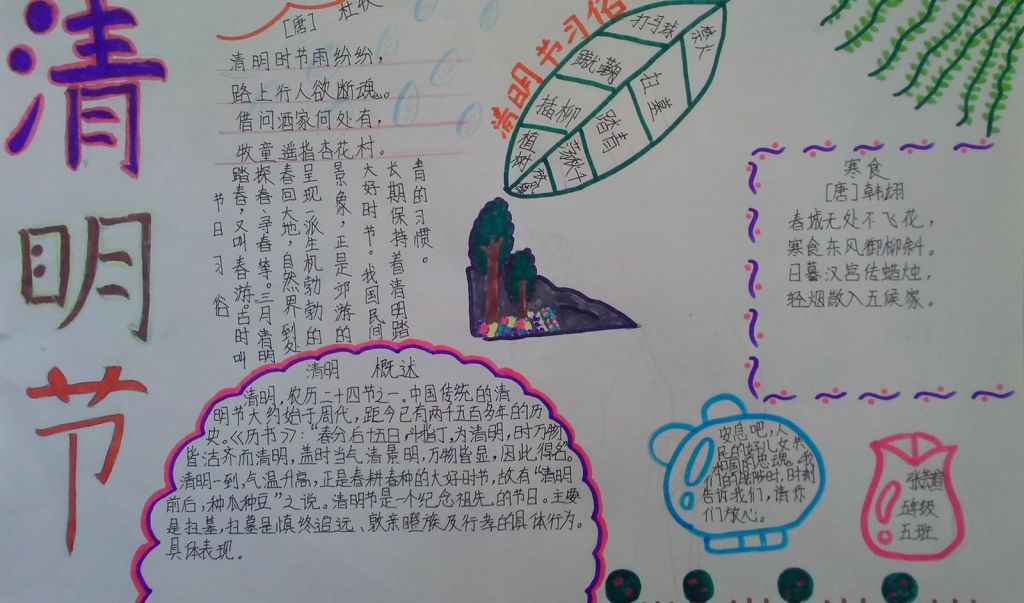 清明节
[唐] 杜牧
清明时节雨纷纷，
路上行人欲断魂。
借问酒家何处有，
牧童遥指杏花村。
节日习俗
踏春，又叫春游。古时叫
探春、寻春等。三月清明
春回大地，自然界到处
呈现一派生机勃勃的
景象，正是郊游的
大好时节。我国民间
长期保持着清明踏
青的习惯。
清明节习俗
打马球
禁火
蹴鞠
扫墓
插柳
踏青
植树
荡秋千
寒食
[唐] 韩翃
春城无处不飞花，
寒食东风御柳斜。
日暮汉宫传蜡烛，
轻烟散入五侯家。
清明 概述
清明，农历二十四节之一。中国传统的清
明节大约始于周代，距今已有两千五百多年的历
史。《历书》：“春分后十五日，斗指丁，为清明，时万物
皆洁齐而清明，盖时当气清景明，万物皆显，因此得名。
清明一到，气温升高，正是春耕春种的大好时节，故有“清明
前后，种瓜种豆”之说。清明节是一个纪念祖先的节日。主要
是扫墓，扫墓是慎终追远、敦亲睦族及行孝的具体行为。
具体表现。
安息吧，人
民的好儿女共
和国的忠魂。我
们的踏步时，时刻
告诉我们，请你
们放心。
五年级
五班